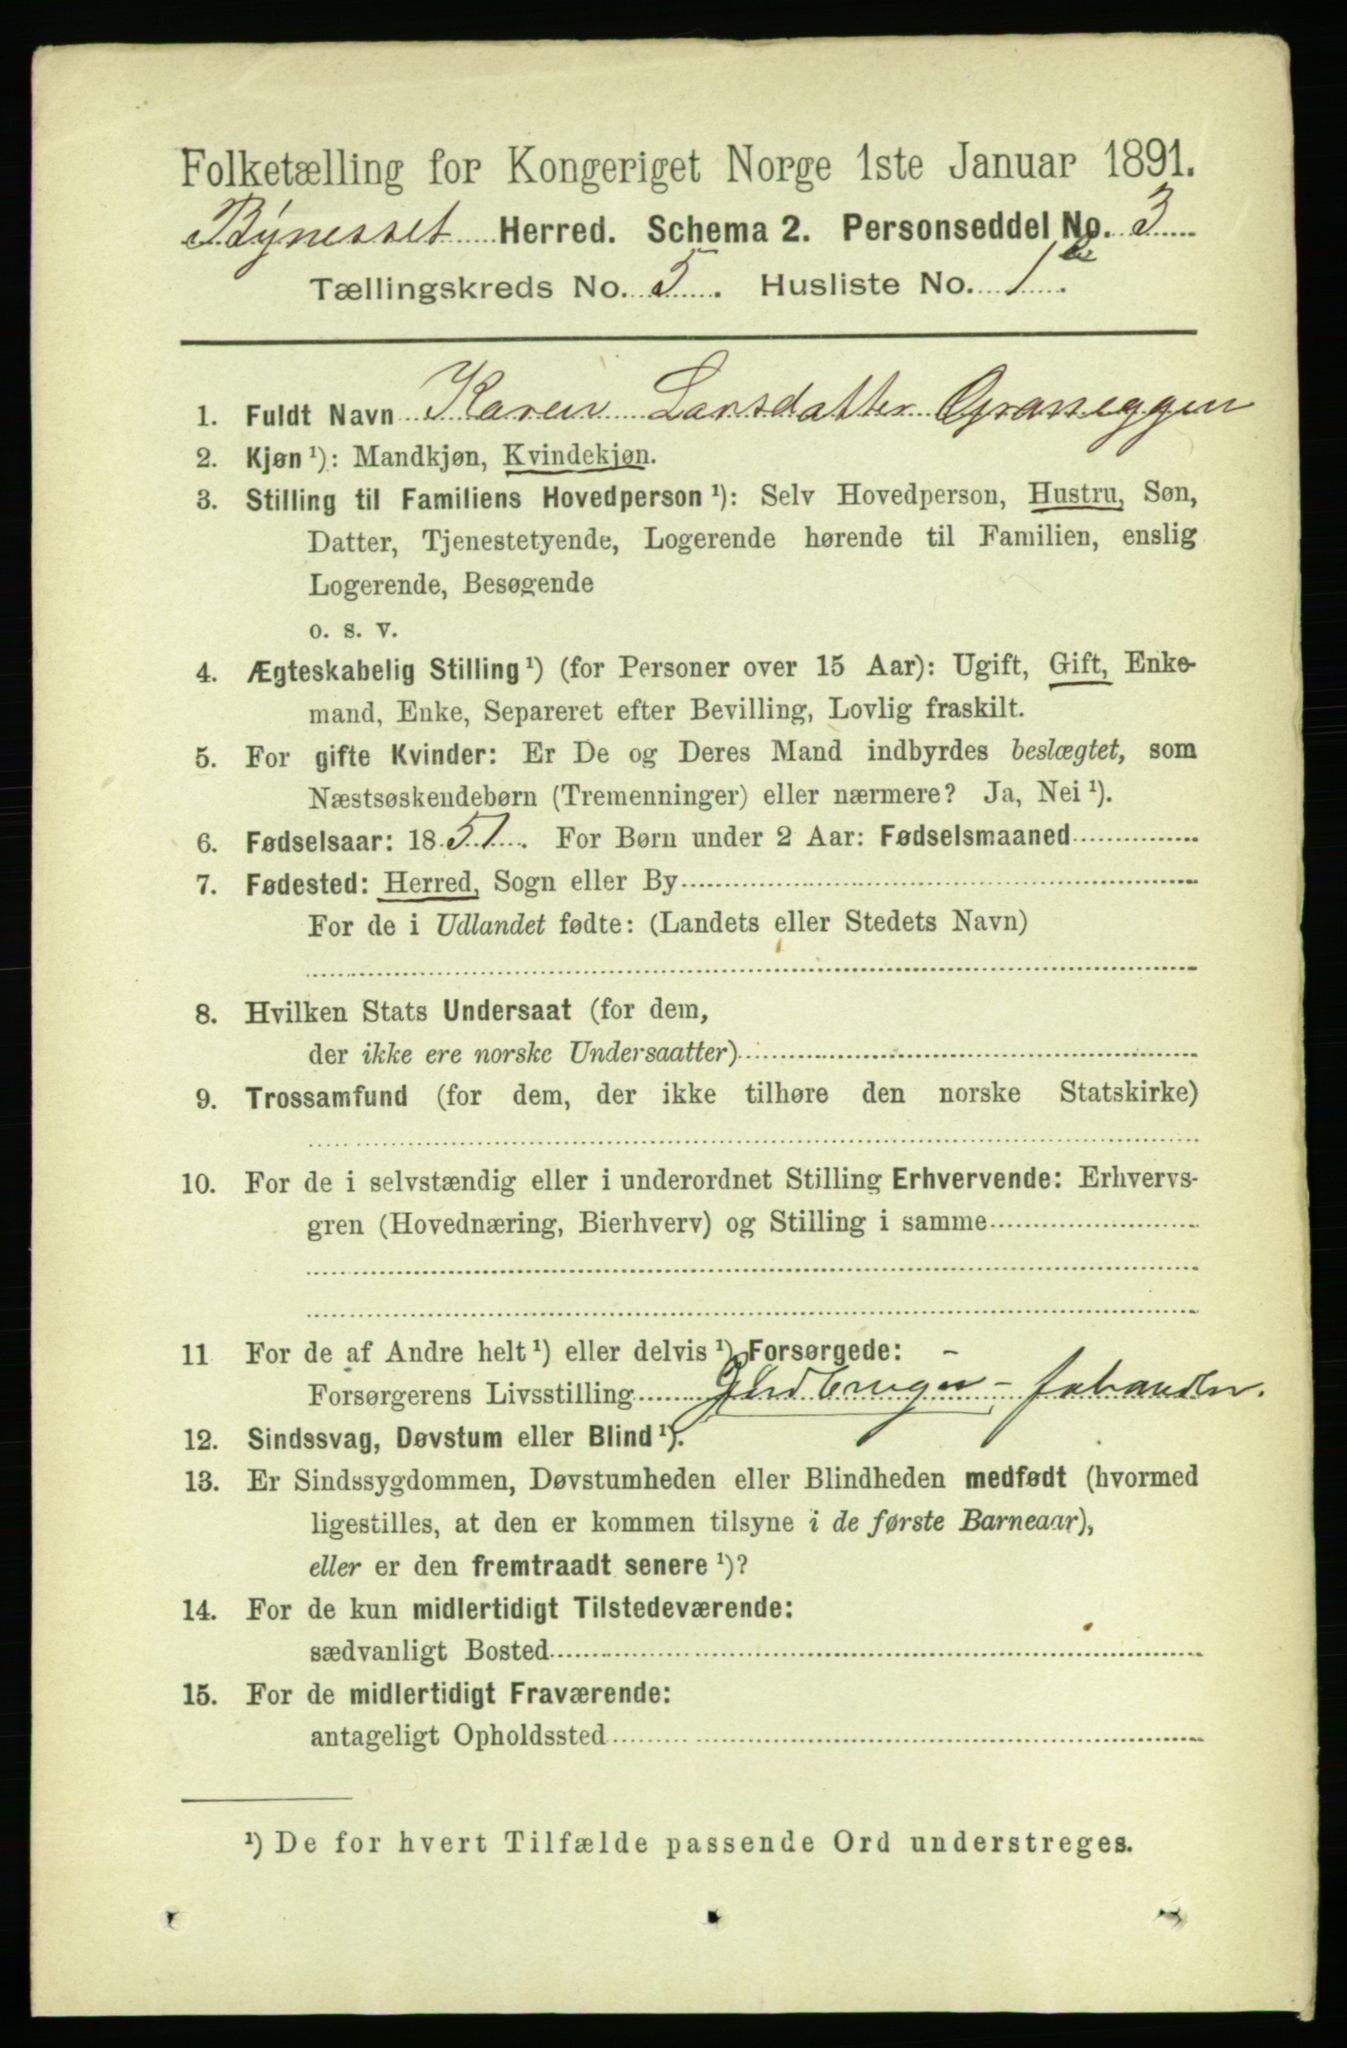 Folketælling for Kongeriget Norge 1ste Januar 1891.
Bynesset Herred. Schema 2. Personseddel No. 3
Tællingskreds No. 5. Husliste No. 1
1. Fuldt Navn Karen Larsdatter Graneggen
2. Kjøn ¹): Mandkjøn, Kvindekjøn.
3. Stilling til Familiens Hovedperson ¹): Selv Hovedperson, Hustru, Søn,
Datter, Tjenestetyende, Logerende hørende til Familien, enslig
Logerende, Besøgende
o. s. v.
4. Ægteskabelig Stilling ¹) (for Personer over 15 Aar): Ugift, Gift, Enke-
mand, Enke, Separeret efter Bevilling, Lovlig fraskilt.
5. For gifte Kvinder: Er De og Deres Mand indbyrdes beslægtet, som
Næstsøskendebørn (Tremenninger) eller nærmere? Ja, Nei ¹).
6. Fødselsaar: 1851. For Børn under 2 Aar: Fødselsmaaned
7. Fødested: Herred, Sogn eller By
For de i Udlandet fødte: (Landets eller Stedets Navn)
8. Hvilken Stats Undersaat (for dem,
der ikke ere norske Undersaatter)
9. Trossamfund (for dem, der ikke tilhøre den norske Statskirke)
10. For de i selvstændig eller i underordnet Stilling Erhvervende: Erhvervs-
gren (Hovednæring, Bierhverv) og Stilling i samme
11 For de af Andre helt ¹) eller delvis ¹) Forsørgede: -
Forsørgerens Livsstilling
12. Sindssvag, Døvstum eller Blind ¹).
13. Er Sindssygdommen, Døvstumheden eller Blindheden medfødt (hvormed
ligestilles, at den er kommen tilsyne i de første Barneaar),
eller er den fremtraadt senere ¹)?
14. For de kun midlertidigt Tilstedeværende:
sædvanligt Bosted
15. For de midlertidigt Fraværende:
antageligt Opholdssted
¹) De for hvert Tilfælde passende Ord understreges.